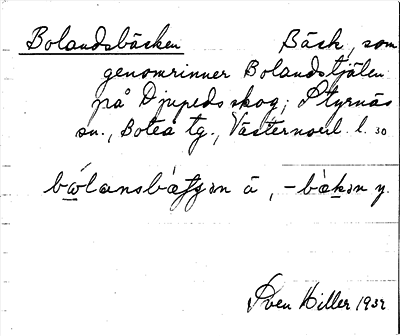 Bolandsbäcken Bäck, som
genomrinner Bolandstjälen
på Djupedsskog; Styrnäs
sn., Boteå tg., Västernorrl. l. 30
bω̲lansbæʃʃən ä, -bæk̲ən y.
Sven Hiller 1932